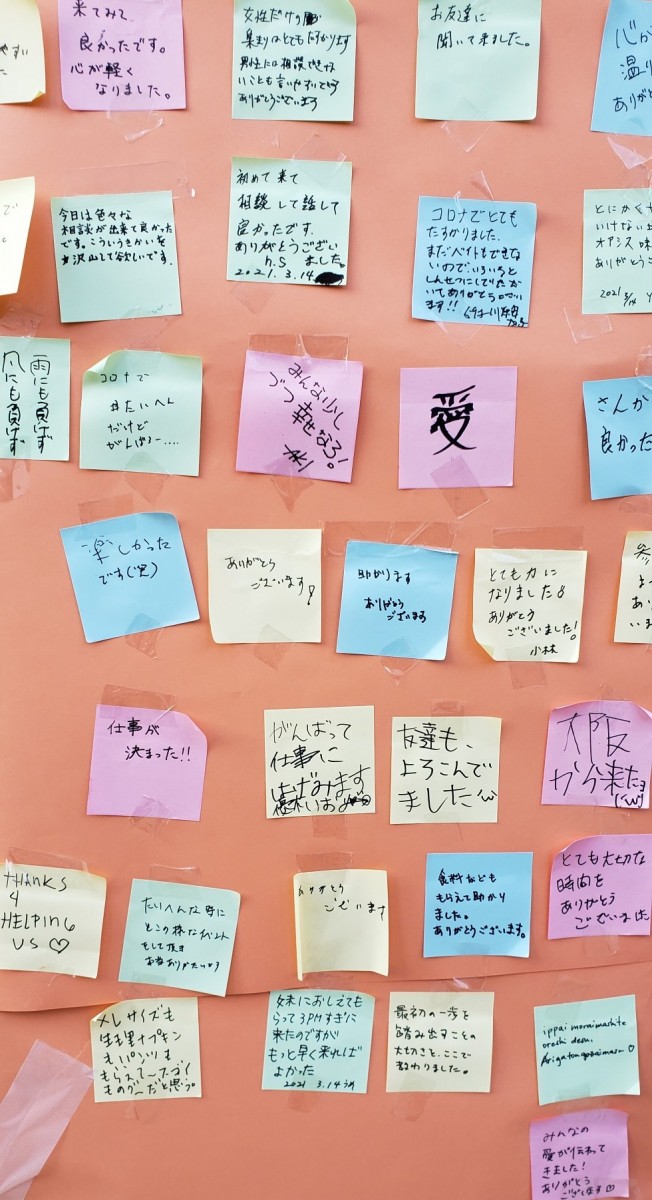 来てみて
良かったです。
心が軽く
なりました。
女性だけの
集まりはとてもたすかります
男性には相談できな
いことも言いやすいです
ありがとうございます
お友達に
聞いて来ました。
心が
温
ありがと
今日は色々な
相談が出来て良かった
です。こういうきかいを
沢山して欲しいです。
初めて来て
相談して話して
良かったです。
ありがとうござい
n.s ました。
2021.3.14
コロナでとても
たすかりました。
まだバイトもできな
いのでいろいろと
しんせつにして
いてありがとうござい
ます!!
とにかく
いけない
オアシス
ありがとうご
2021 3/14
雨にも負けず
風にも負けず
コロナで
たいへん
だけど
がんばるー....
みんな少し
づつ幸せなろ!
愛
さんか
良かった
楽しかった
です(笑)
ありがとう
ございます!
助かります
ありがとう
ございます
とても力に
なりました
ありがとう
ございました!
小林
仕事が
決まった!!
がんばって
仕事に
はげみます
友達も、
よろこんで
ました
大阪
から来たョ
('ω')
THANKS
4
HELPING
US ♡
たいへんな時に
この様なイベント
をして頂き
ありがとう
ございます
食料なども
もらえて助かり
ました。
ありがとうございます。
とても大切な
時間を
ありがとう
ございました
メLサイズも
生理ナプキン
もパンツも
もらえて〜スゴイ
だと思う。
妹におしえても
らって3PMすぎに
来たのですが
もっと早く来れば
よかった
2021 3.14
最初の一歩を
踏み出すことの
大切さを、ここで
教わりました。
ippai moraimashite
ureshi desu.
Arigatougozaimasu ♡
みんなの
愛が伝わって
きました!
ありがとう
ございます ♡